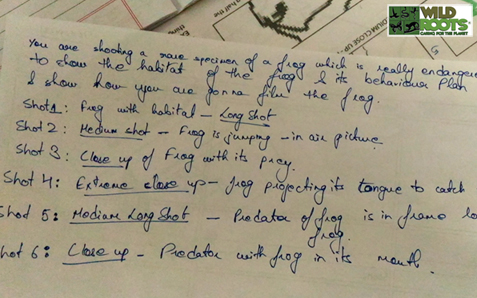 WILD
ROOTS
CARING FOR THE PLANET
DIUM CLOSE UP
You are shooting a rare specimen of a frog which is really endange
to show the habitat of the frog & its behaviour Plan
& show how you are gonna film the frog.
Shot 1: Frog with habitat – Long Shot
Shot 2: Medium shot – Frog is jumping – in air picture
Shot 3: Close up of Frog with its prey.
Shot 4: Extreme close up – frog projecting its tongue to catch
Shot 5: Medium Long Shot – Predator of frog is in frame
frog.
hot 6: Close up – Predator with frog in its mouth.